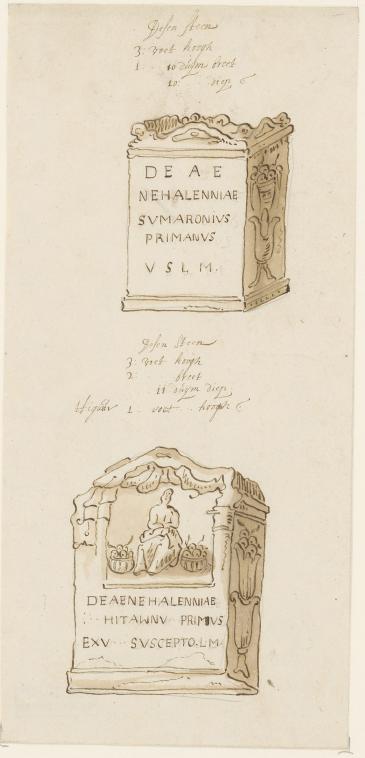 Desen steen
3: voet hoogh
1 .. 10 duijm breet
10: .. diep
DEAE
NEHALENNIAE
SVMARONIVS
PRIMANVS
V S L M.
Desen Steen
3: voet hoogh
2: .. breet
11 duijm diep
1 .. voet .. hoogh
DEAENEHALENNIAE
HITAWNV PRIMVS
EXV ·· SVSCEPTO.L.M